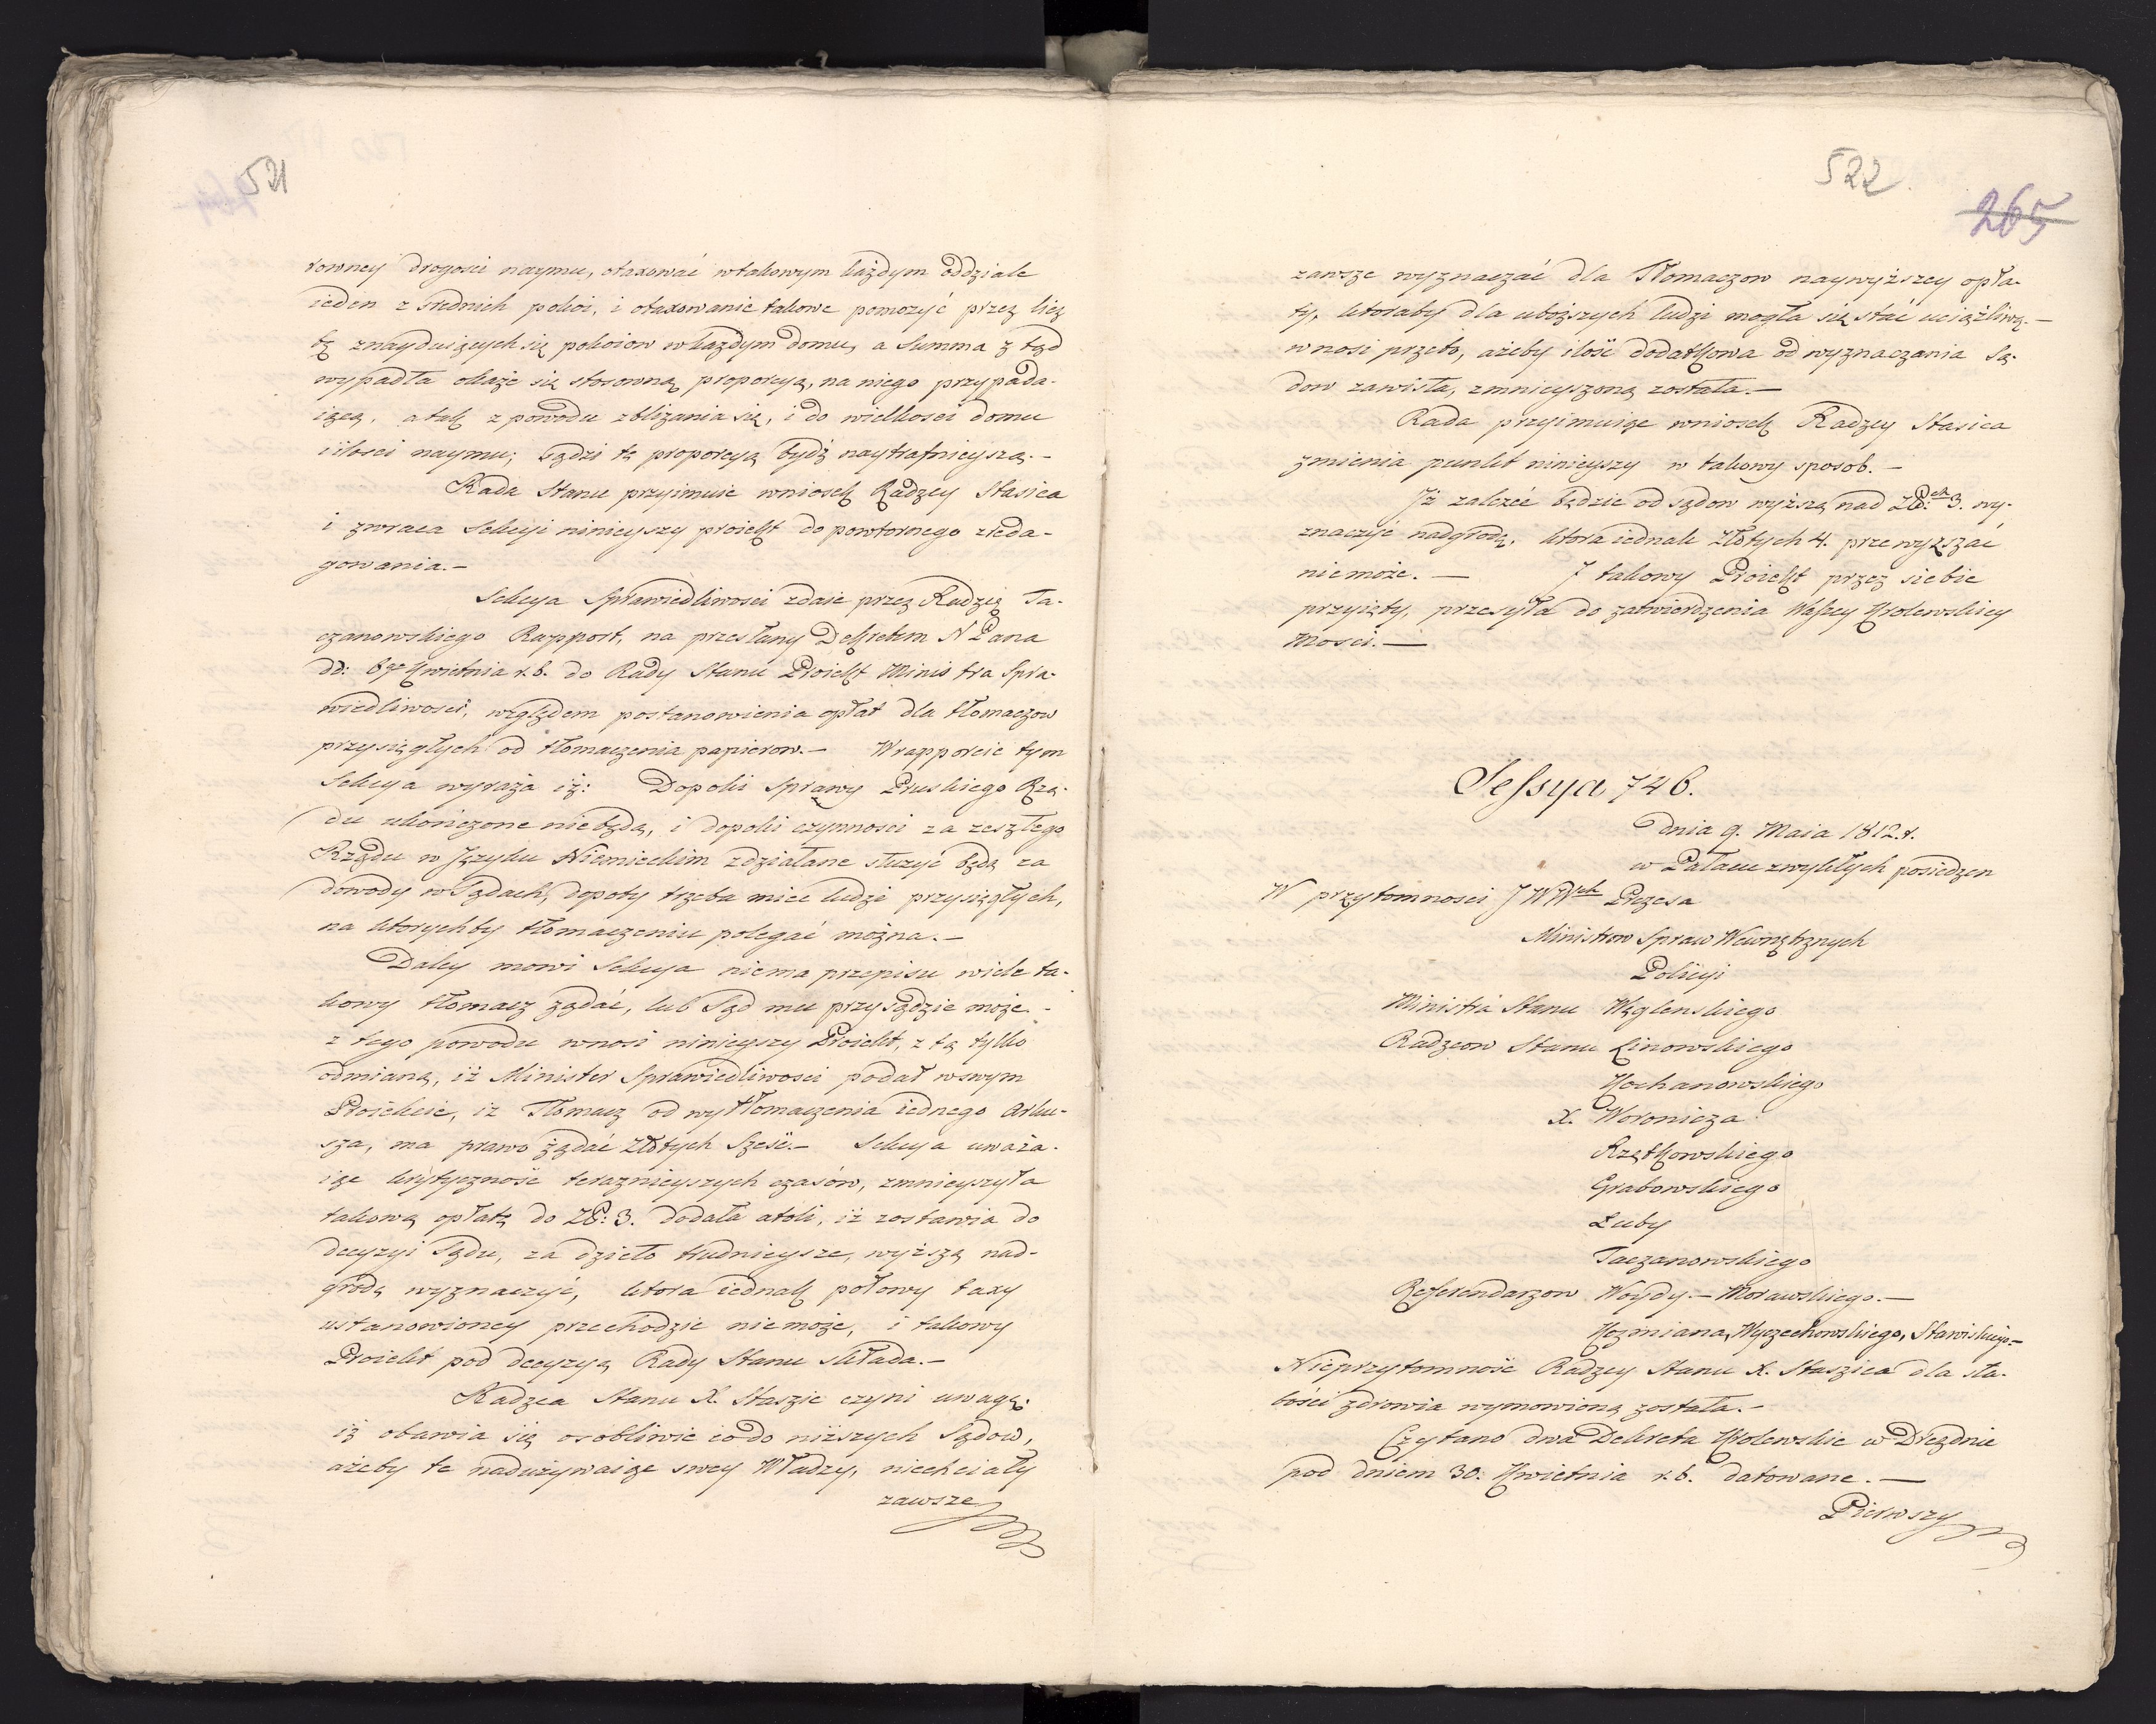 521
rowney drogosci naymu, otaxować w takowym każdym oddziale
ieden z srednich pokoi, i otaxowanie takowe pomozyć przez licz
bę znayduiących się pokoiow w każdym domu, a Summa z tąd
wypadła okaże się stosowną proporcyą, na niego przypada-
iącą, a tak z powodu zbliżania się, i do wielkosci domu
i ilosci naymu; będzi tą proporcyą bydź naytrafnieyszą.-
Rada Stanu przyimuie wniosek Radzcy Stasica
i zwraca Sekcyi ninieyszy proiekt do powtornego zreda-
gowania.-
Sekcya Sprawiedliwosci zdaie przez Radzcę Ta-
czanowskiego Rapport, na przesłany Dekretem N Pana
dd: 6go Kwietnia r. b. do Rady Stanu Proiekt Ministra Spra-
wiedliwosci, względem postanowienia opłat dla tłomaczow
przysięgłych od tłomaczenia papierow.- W rapporcie tym
Sekcya wyraża iż: Dopoki Sprawy Pruskiego Rzą-
du ukończone nie będą, i dopoki czynnosci za zeszłego
Rządu w Języku Niemieckim zdziałane służyć będą za
dowody w Sądach, dopoty trzeba miec ludzi przysięgłych,
na ktorychby tłomaczeniu polegać można.-
Daley mowi Sekcya niema przepisu wiele ta-
kowy tłomacz żądać, lub Sąd mu przysądzic może.-
z tego powodu wnosi ninieyszy Proiekt, z tą tylko
odmianą, iż Minister Sprawiedliwosci podał w swym
Proiekcie, iż Tłomacz od wytłomaczenia iednego Arku-
sza, ma prawo żądać Złotych Sześć.- Sekcya uważa-
iąc krytyczność teraznieyszych czasów, zmnieyszyła
takową opłatę do ZP: 3. dodała atoli, iż zostawia do
decyzyi Sądu, za dzieło trudnieysze, wyższą nad-
grodę wyznaczyć, ktora iednak połowy taxy
ustanowioney przechodzic niemoże, i takowy
Proiekt pod decyzyą Rady Stanu składa.-
Radzca Stanu X. Staszic czyni uwagę:
iż obawia się osobliwie co do niższych Sądow,
ażeby te nadużywaiąc swey Władzy, niechciały
zawsze
522.
265
zawsze wyznaczać dla Tłomaczow naywyższey opła-
ty, ktoraby dla uboższych ludzi mogła się stać uciążliwą.-
wnosi przeto, ażeby ilość dodatkowa od wyznaczania Są-
dow zawisła, zmnieyszoną została.-
Rada przyimuiąc wniosek Radzcy Stasica
zmienia punkt ninieyszy w takowy sposob.-
Iż zależeć będzie od sądow wyższą nad Złtch 3. wy-
znaczyć nadgrodę, ktora iednak Złotych 4. przewyższać
niemoże.- I takowy Proiekt przez siebie
przyięty, przesyła do zatwierdzenia Waszey Krolewskiey
Mosci.-
Sessya 746.
Dnia 9. Maia 1812. r.
w Pałacu zwykłych posiedzen
W przytomnosci J WWch Prezesa
Ministrow Spraw Wewnętrznych
Policyi
Ministra Stanu Węglenskiego
Radzcow Stanu Linowskiego
Kochanowskiego
X. Woronicza
Rzętkowskiego
Grabowskiego
Łuby
Taczanowskiego
Referendarzow Woydy.- Morawskiego.-
Kozmiana, Wyczechowskiego, Stawiskiego.-
Nieprzytomność Radzcy Stanu X. Staszica dla sła-
bości zdrowia wymowioną została.-
Czytano dwa Dekreta Krolewskie w Dreznie
pod dniem 30. Kwietnia r. b. datowane.-
Pierwszy